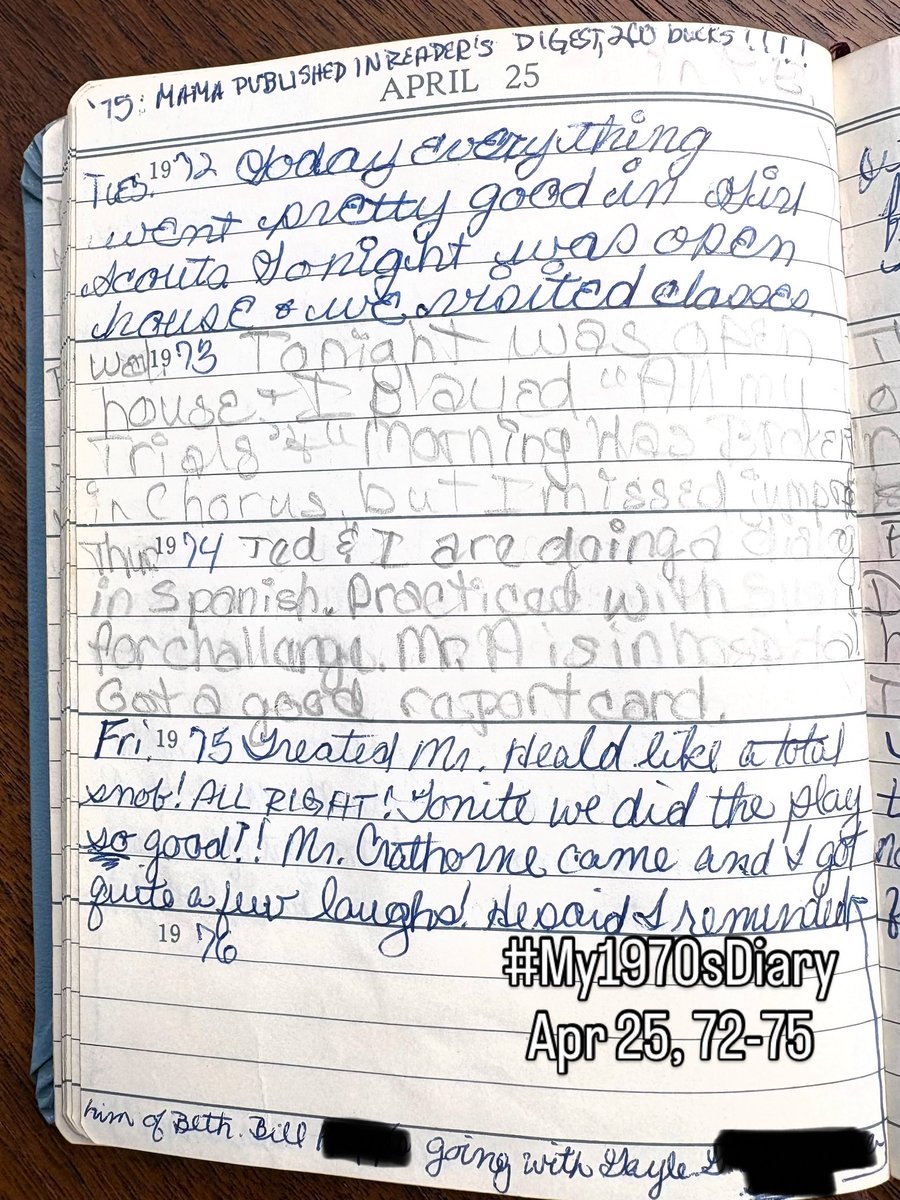 '75: MAMA PUBLISHED IN READER'S DIGEST, 200 bucks!!!!
APRIL 25
TUES. 1972 Today everything
went pretty good in Girl
Scouts. Tonight was open
house & we visited classes.
Wed. 1973 Tonight was open
house & I played "All my
Trials" & "Morning Has Broken
in Chorus, but I missed
Thur 1974 Ted & I are doing a dialog
in Spanish. Practiced with
for challange. Mr. A is in hospital
Got a good raport card.
Fri. 1975 Treated Mr. Heald like a total
snob! ALL RIGHT! Tonite we did the play
so good?! Mr. Crathorne came and I got
quite a few laughs! He said I reminded
1976
him of Beth. Bill going with Gayle
#My1970sDiary
Apr 25, 72-75